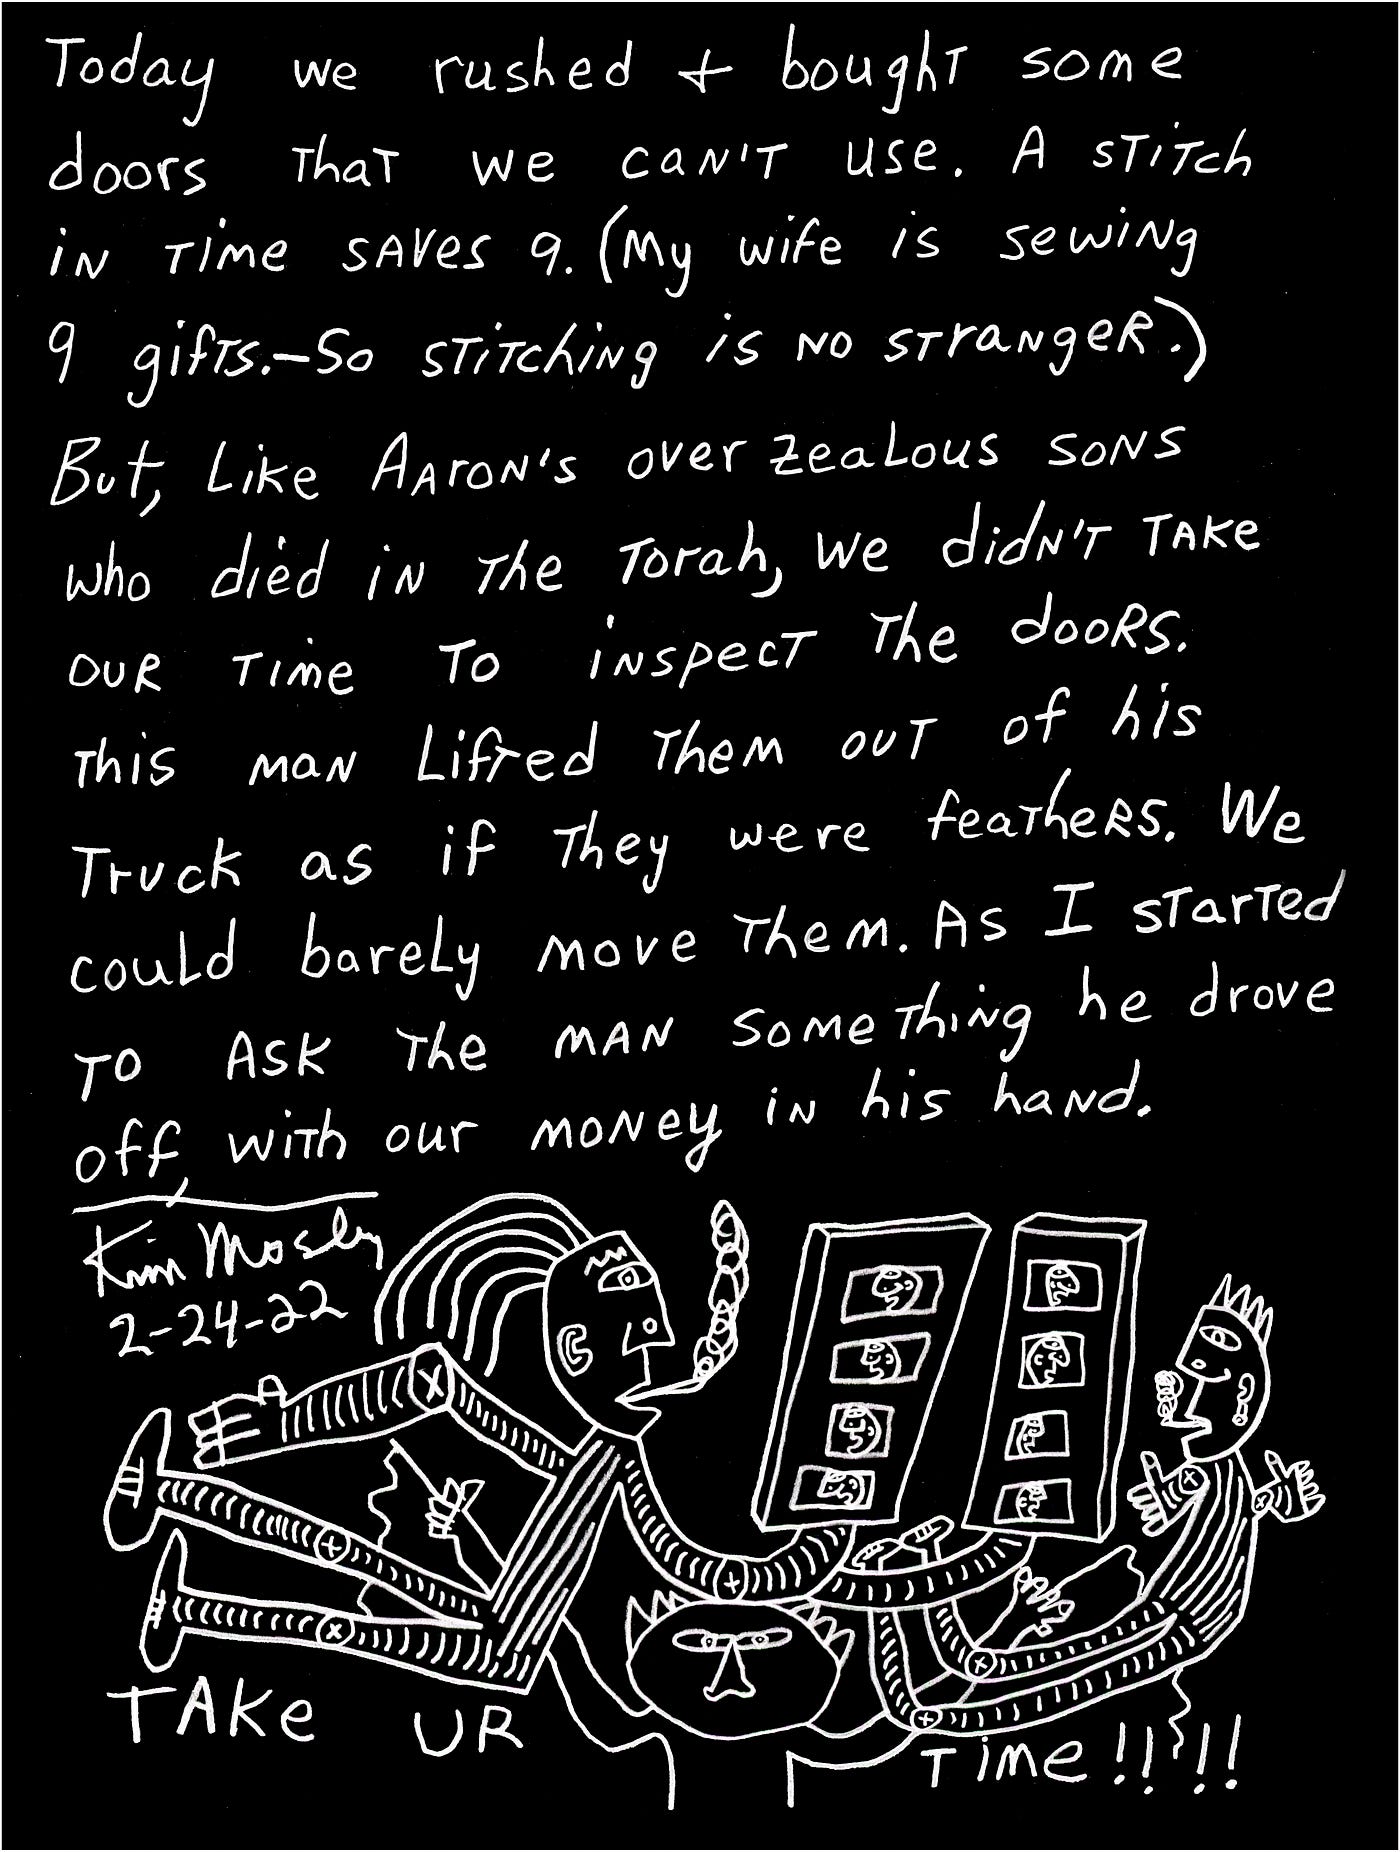 Today we rushed + bought some
doors that we can't use. A stitch
in time saves 9. (My wife is sewing
9 gifts.—So stitching is no stranger.)
But, like Aaron's over zealous sons
who died in the Torah, we didn't take
our time to inspect the doors.
This man lifted them out of his
truck as if they were feathers. We
could barely move them. As I started
to ask the man something he drove
off, with our money in his hand.
Kim Mosley
2-24-22
TAKE UR TIME!!!!